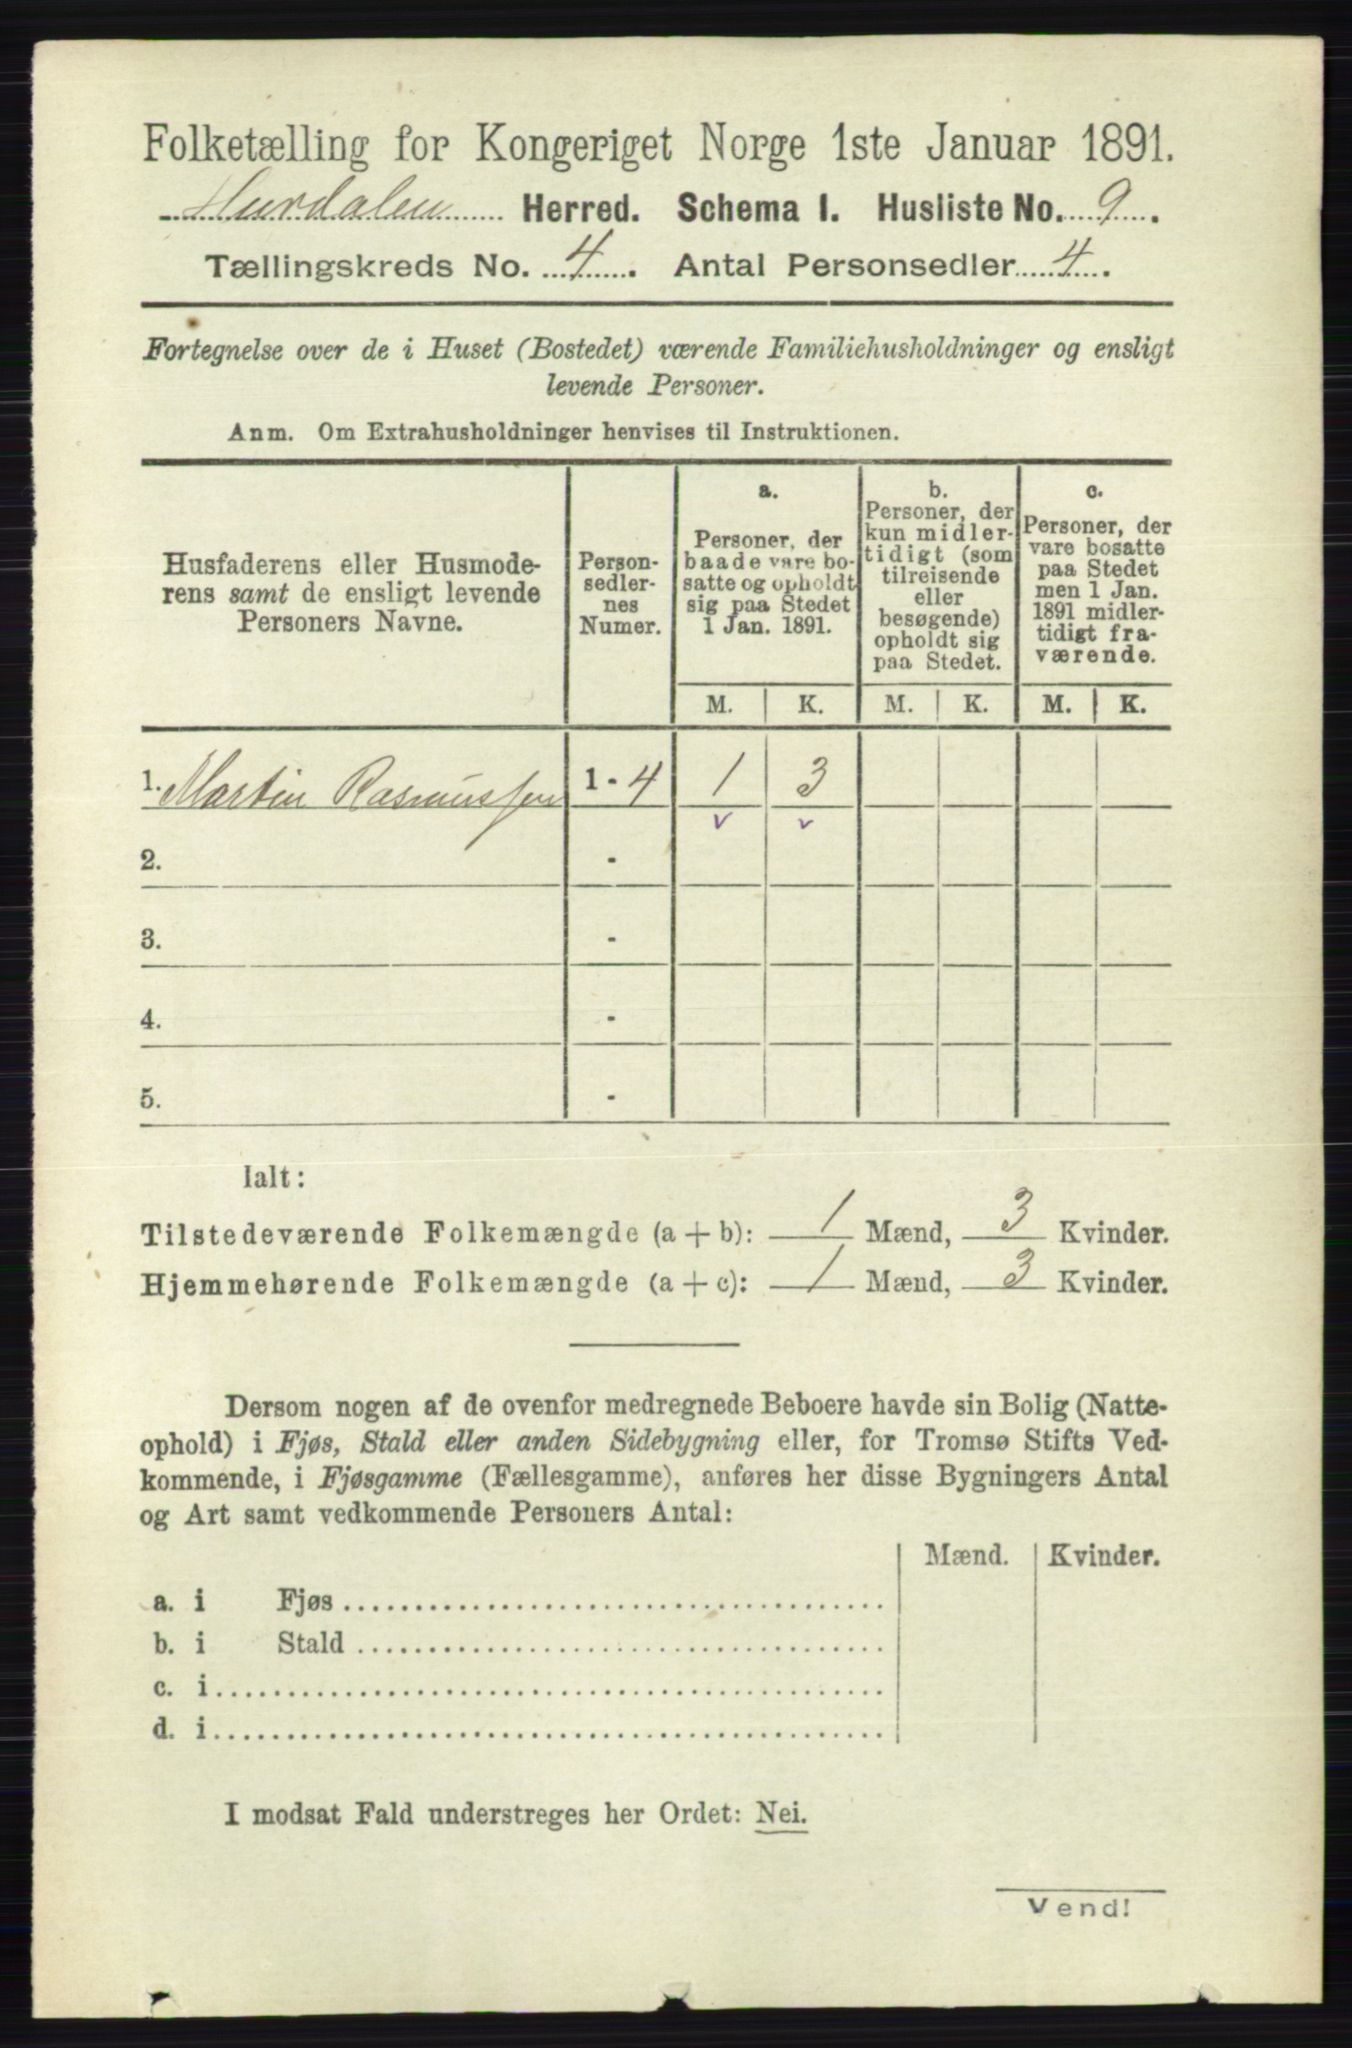 Folketælling for Kongeriget Norge 1ste Januar 1891.
Hurdalen Herred. Schema I. Husliste No. 9.
Tællingskreds No. 4. Antal Personsedler 4.
Fortegnelse over de i Huset (Bostedet) værende Familiehusholdninger og ensligt
levende Personer.
Anm. Om Extrahusholdninger henvises til Instruktionen.
Husfaderens eller Husmode-
rens samt de ensligt levende
Personers Navne.
Person-
sedler-
nes
Numer.
a.
Personer, der
baade vare bo-
satte og opholdt
sig paa Stedet
1 Jan. 1891.
b.
Personer, der
kun midler-
tidigt (som
tilreisende
eller
besøgende)
opholdt sig
paa Stedet.
c.
Personer, der
vare bosatte
paa Stedet
men 1 Jan.
1891 midler-
tidigt fra-
værende.
M. K. M. K. M. K.
1. Martin Rasmussen 1 - 4 1 3
v v
2. -
3. -
4. -
5. -
Ialt:
Tilstedeværende Folkemængde (a + b): 1 Mænd, 3 Kvinder.
Hjemmehørende Folkemængde (a + c): 1 Mænd, 3 Kvinder.
Dersom nogen af de ovenfor medregnede Beboere havde sin Bolig (Natte-
ophold) i Fjøs, Stald eller anden Sidebygning eller, for Tromsø Stifts Ved-
kommende, i Fjøsgamme (Fællesgamme), anføres her disse Bygningers Antal
og Art samt vedkommende Personers Antal:
Mænd. Kvinder.
a. i Fjøs
b. i Stald
c. i
d. i
I modsat Fald understreges her Ordet: Nei.
Vend!